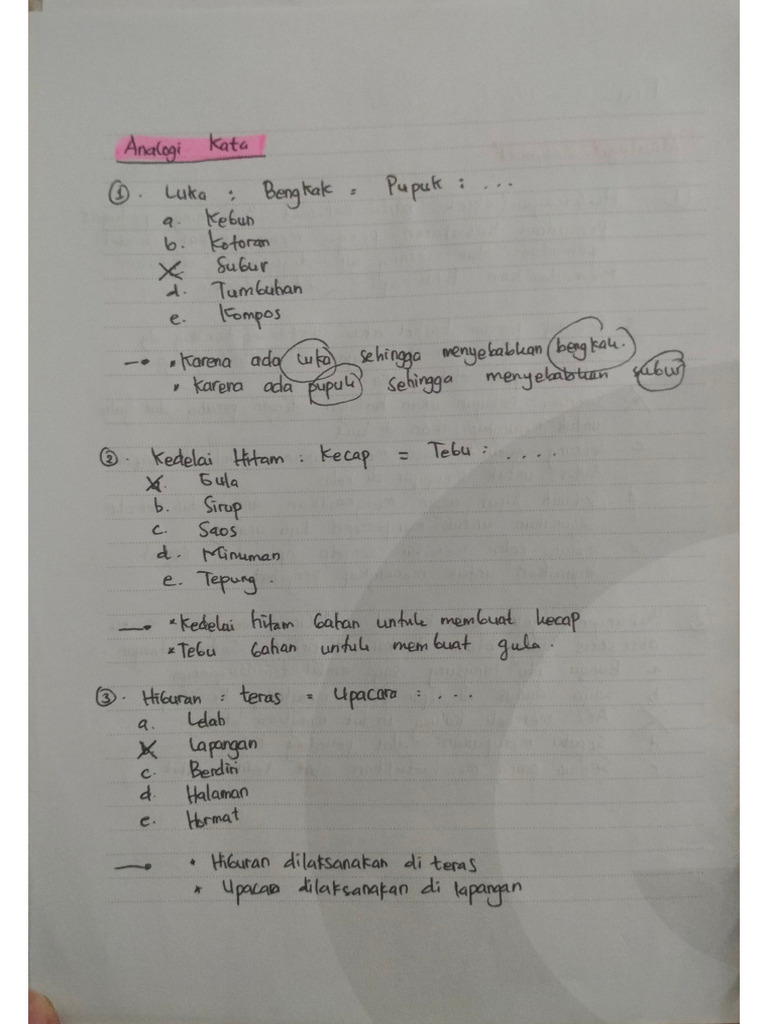 Analogi Kata
①. Luka : Bengkak = Pupuk : ...
a. Kebun
b. Kotoran
X Subur
d. Tumbuhan
e. Kompos
→ • Karena ada luka sehingga menyebabkan bengkak.
• Karena ada pupuk sehingga menyebabkan subur
②. Kedelai Hitam : Kecap = Tebu : ....
X. Gula
b. Sirup
c. Saos
d. Minuman
e. Tepung.
→ * Kedelai hitam bahan untuk membuat kecap
* Tebu bahan untuk membuat gula.
③. Hiburan : teras = Upacara : ...
a.
X Lapangan
c. Berdiri
d. Halaman
e. Hormat
→ • Hiburan dilaksanakan di teras
* Upacara dilaksanakan di lapangan